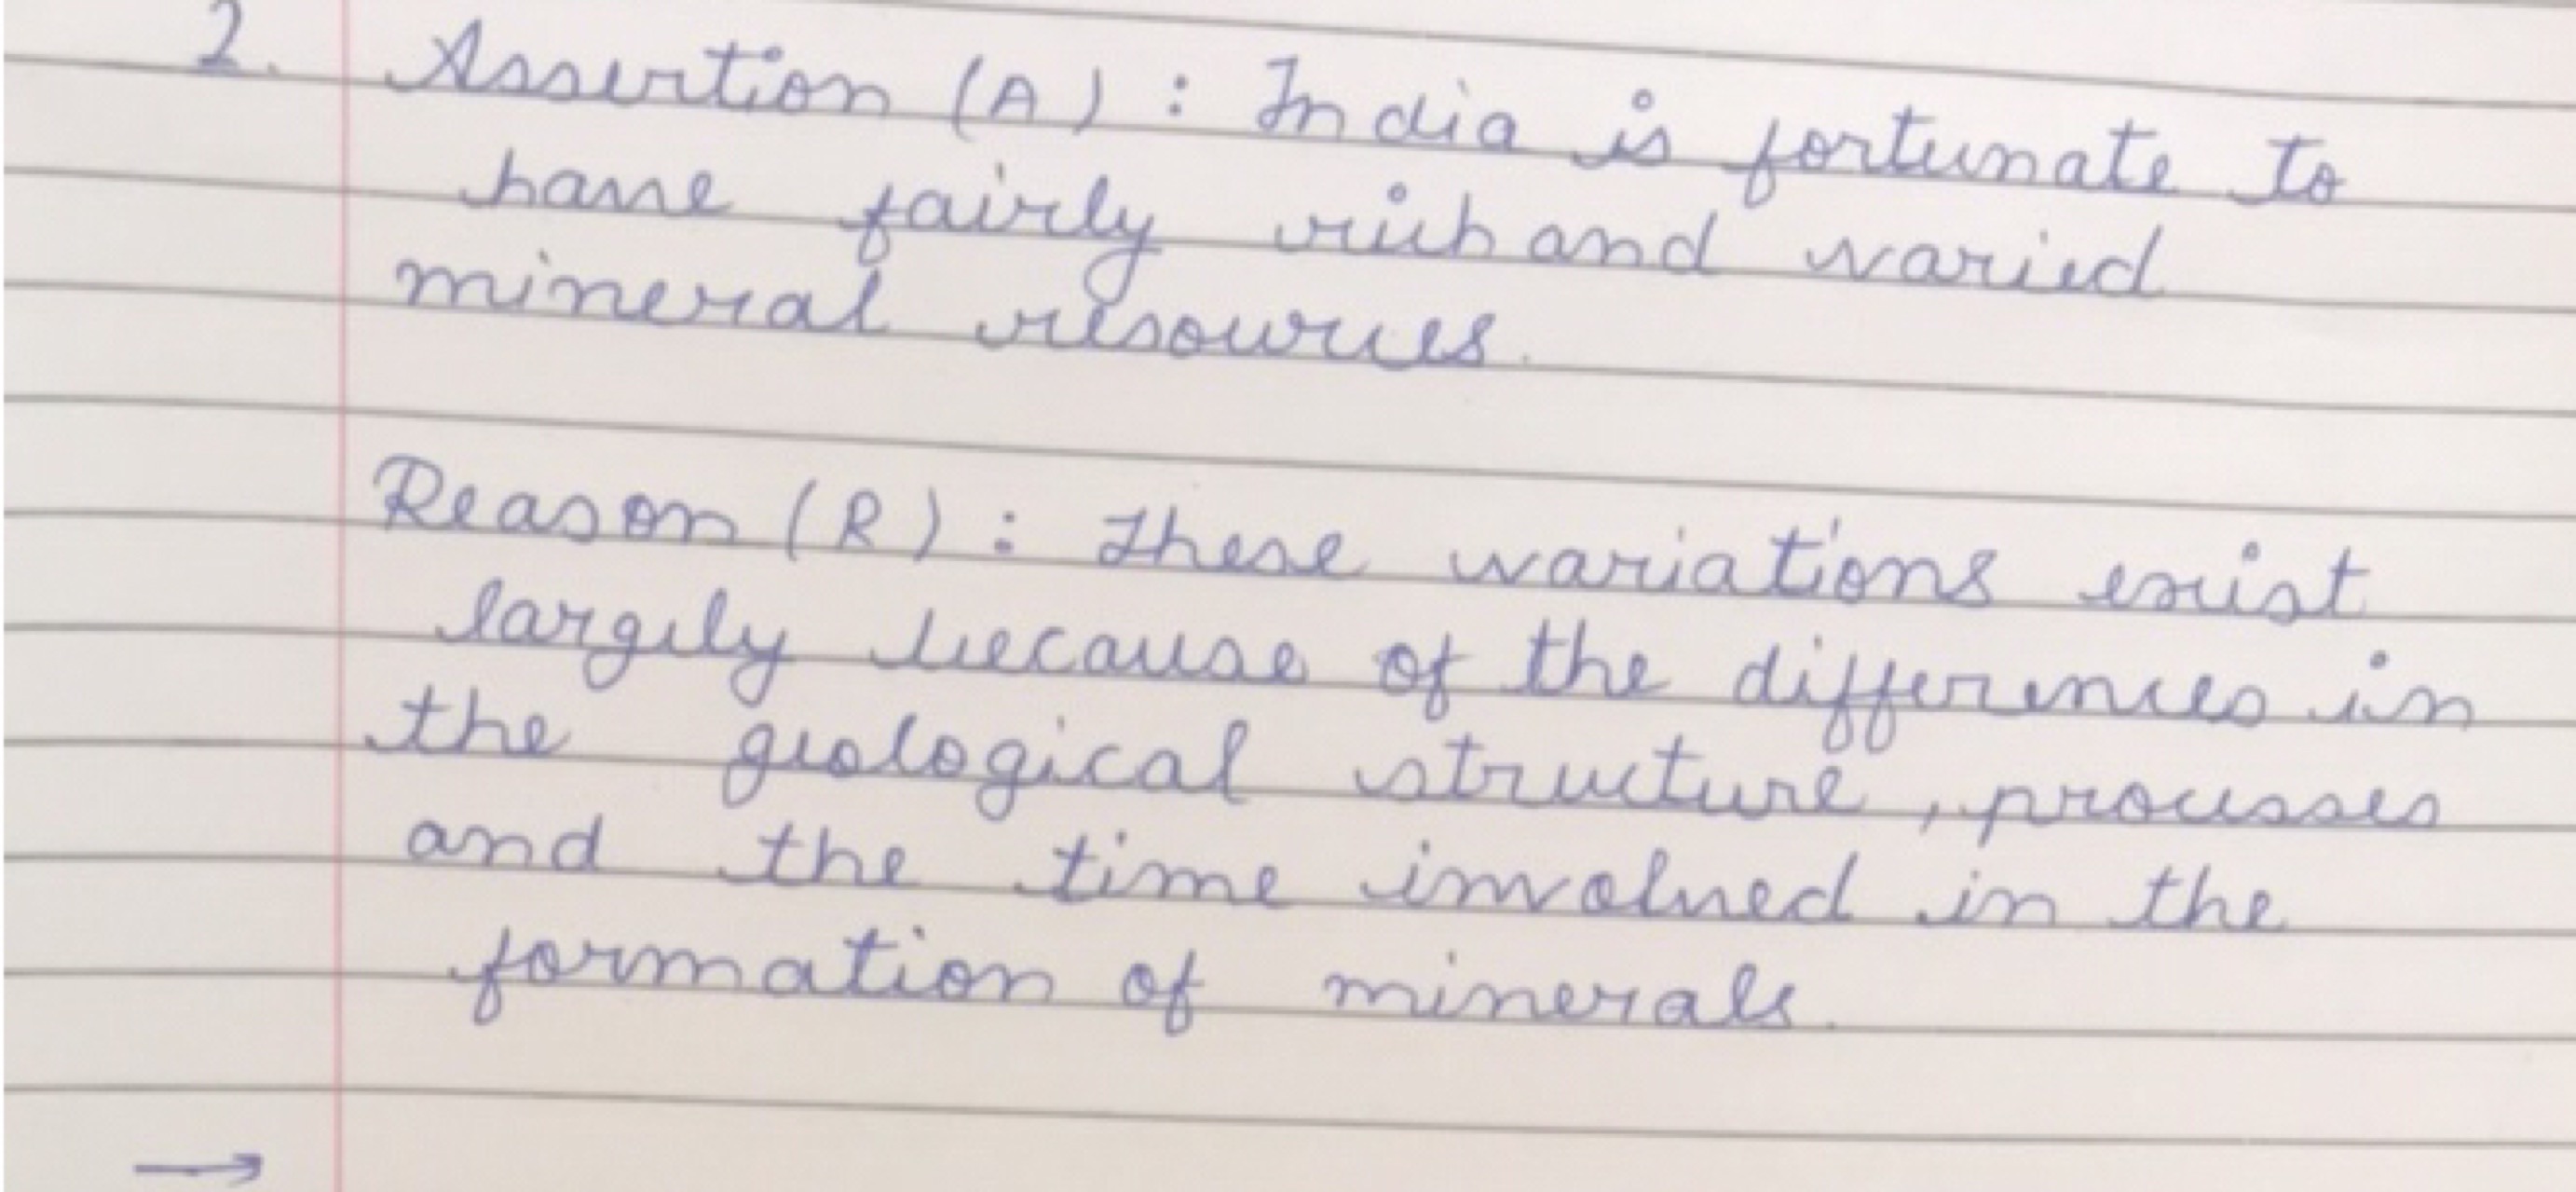 2. Assertion (A) : India is fortunate to
have fairly rich and varied
mineral resources.
Reason (R) : These variations exist
largely because of the differences in
the geological structure, processes
and the time involved in the
formation of minerals.
→